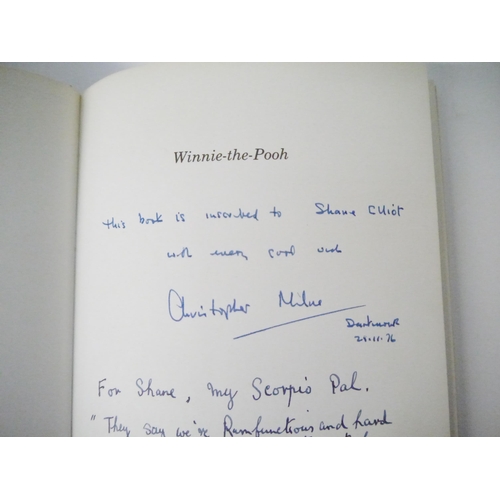 Winnie-the-Pooh
This book is inscribed to Shane Elliot
with every good wish
Christopher Milne
Dartmouth
For Shane, my Scorpio Pal.
"They say we're Rumfunctious and hard